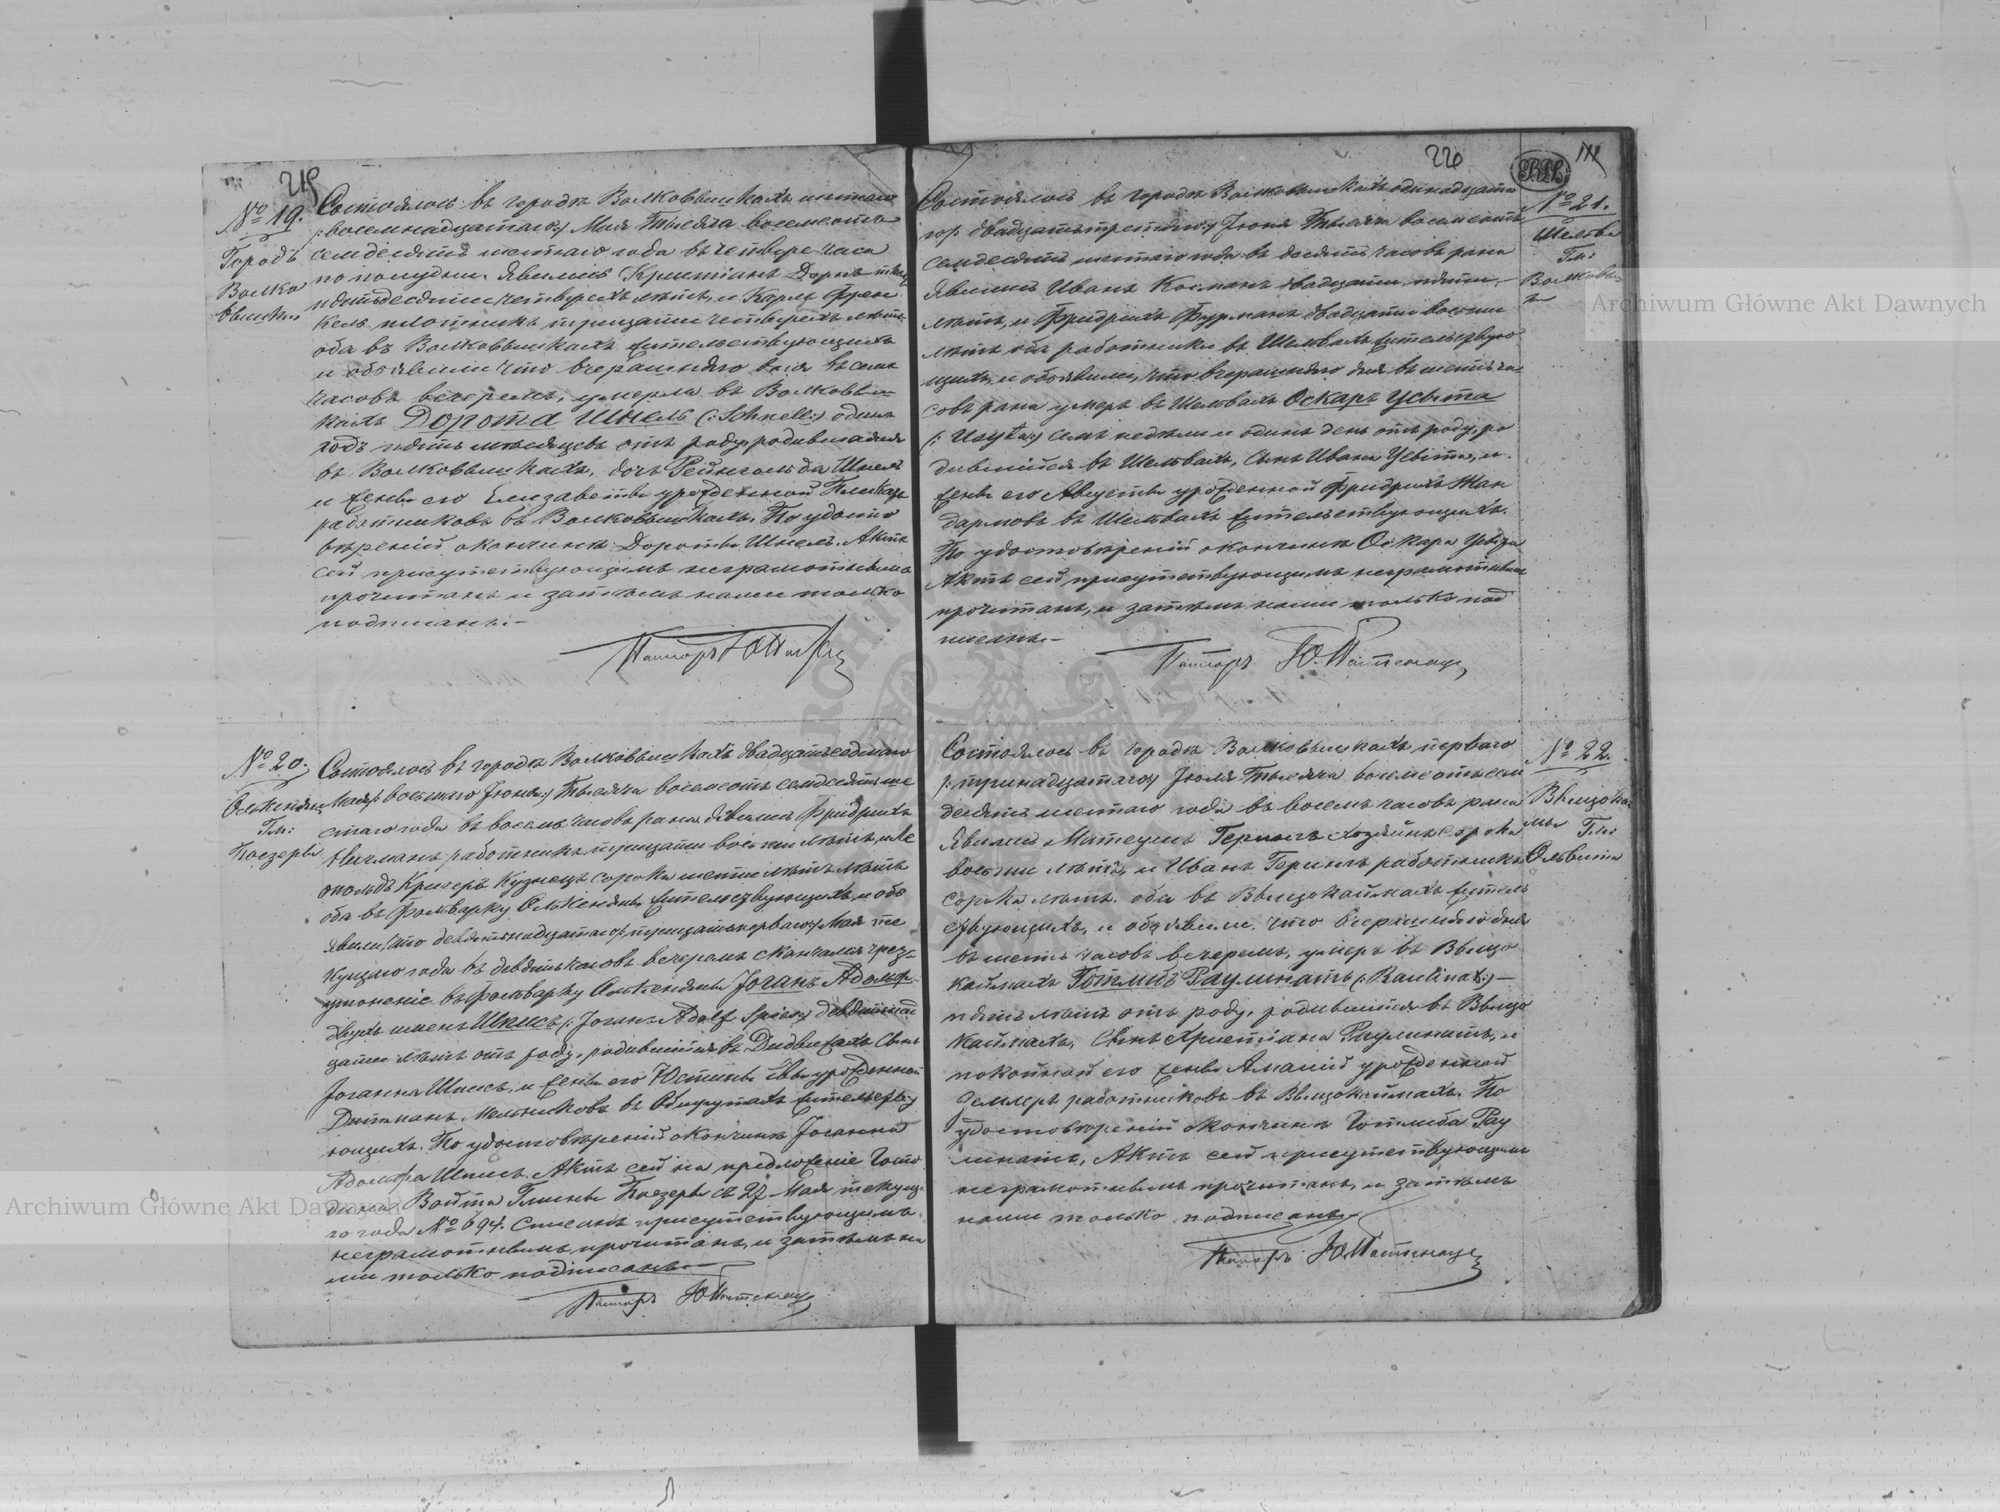 219
№ 19.
Городъ
Волко
вышки
Состоялось въ городѣ Волковышкахъ шестаго
/:восемнадцатаго:/ Мая Тысяча восемсотъ
семдесятъ шестаго года въ четвере часа
по полудни. Явились Христіанъ Доркъ
пятьдесятъ четырехъ лѣтъ, и Карлъ Френ
кель плотникъ тридцати четырехъ лѣтъ
оба въ Волковышкахъ жительствующихъ
и объявили что вчерашняго дня въ семь
часовъ вечеромъ, умерла въ Волковыш
кахъ Дорота Шнель (:Schnell:) одинъ
годъ пять мѣсяцевъ отъ роду, родившаяся
въ Волковышкахъ, дочь Рейнгольда Шнель
и жены его Елизаветы урожденной
работниковъ въ Волковышкахъ. По удосто
вѣреніи о кончинѣ Дороты Шнель. Актъ
сей присутствующимъ неграмотнымъ
прочитанъ и затѣмъ нами только
подписанъ.—
Пасторъ
№ 20.
Олькеняны
Гм:
Поезеры
Состоялось въ городѣ Волковышкахъ двадцать седмаго
Мая /: восьмаго Іюня:/ Тысяча восемсотъ семдесятъ ше
стаго года въ восемь часовъ рана. Явились Фридрихъ
работникъ тридцати восьми лѣтъ, и Ле
опольдъ Кригеръ кузнецъ сорока шести лѣтъ
оба въ фольварку Олькеняны жительствующихъ, и объ
явили, что девятнадцатаго /: тридцать перваго:/ Мая те
кущаго года въ девять часовъ вечеромъ скончался чрезъ
утоненіе въ фольварку Олькеняны Іоганъ Адольфъ
двухъ именъ Шписъ (: Johan Adolf Spies:) девятнад
цати лѣтъ отъ роду, родившійся въ сынъ
Іоганна Шписъ, и жены его Юстины урожденной
Дитманъ, мельниковъ въ жительству
ющихъ. По удостовѣреніи о кончинѣ Іоганна
Адольфа Шписъ. Актъ сей на предложеніе Госпо
дина Войта Гмины Поезеры съ 27 Мая текуща
го года № 694. Списанъ присутствующимъ
неграмотнымъ прочитанъ, и затѣмъ на
ми только подписанъ.—
Пасторъ
220
111
№ 21.
Шельвы
Гм:
Состоялось въ городѣ Волковышкахъ одинадцата
го /: двадцать третьяго:/ Іюня Тысяча восемсотъ
семдесятъ шестаго года въ десять часовъ рана
Явились Иванъ Косманъ двадцати пяти
лѣтъ, и Фридрихъ Фурманъ двадцати восьми
лѣтъ оба работники въ Шельвахъ жительству
ющихъ, и объявили, что вчерашняго дня въ шесть ча
совъ рана умеръ въ Шельвахъ Оскаръ Усвита
семь недѣли и одинъ день отъ роду, ро
дившійся въ Шельвахъ, сынъ Ивана Усвита, и
жены его Августы урожденной Фридрихъ Жан
дармовъ въ Шельвахъ жительствующихъ.
По удостовѣреніи о кончинѣ Оскара Усвита
Актъ сей присутствующимъ неграмотнымъ
прочитанъ, и затѣмъ нами только под
писанъ.—
Пасторъ
№ 22.
Гм:
Ольвита
Состоялось въ городѣ Волковышкахъ перваго
/: тринадцатаго:/ Іюля Тысяча восемсотъ сем
десятъ шестаго года въ восемь часовъ рана
Явились Матеушъ Герингъ хозяинъ сорока
восьми лѣтъ, и Иванъ Герингъ работникъ
сорока лѣтъ. оба въ Вышокаймахъ житель
ствующихъ, и объявили, что вчерашняго дня
въ шесть часовъ вечеромъ, умеръ въ Вышо
каймахъ Готлибъ Раулинатъ (: Raulinat:)—
пять лѣтъ отъ роду, родившійся въ Вышо
каймахъ, сынъ Христіана Раулинатъ, и
покойной его жены Амаліи урожденной
работниковъ въ Вышокаймахъ. По
удостовѣреніи о кончинѣ Готлиба Рау
линатъ, Актъ сей присутствующимъ
неграмотнымъ прочитанъ, и затѣмъ
нами только подписанъ.—
Пасторъ
Archiwum Główne Akt Dawnych
Archiwum Główne Akt Dawnych